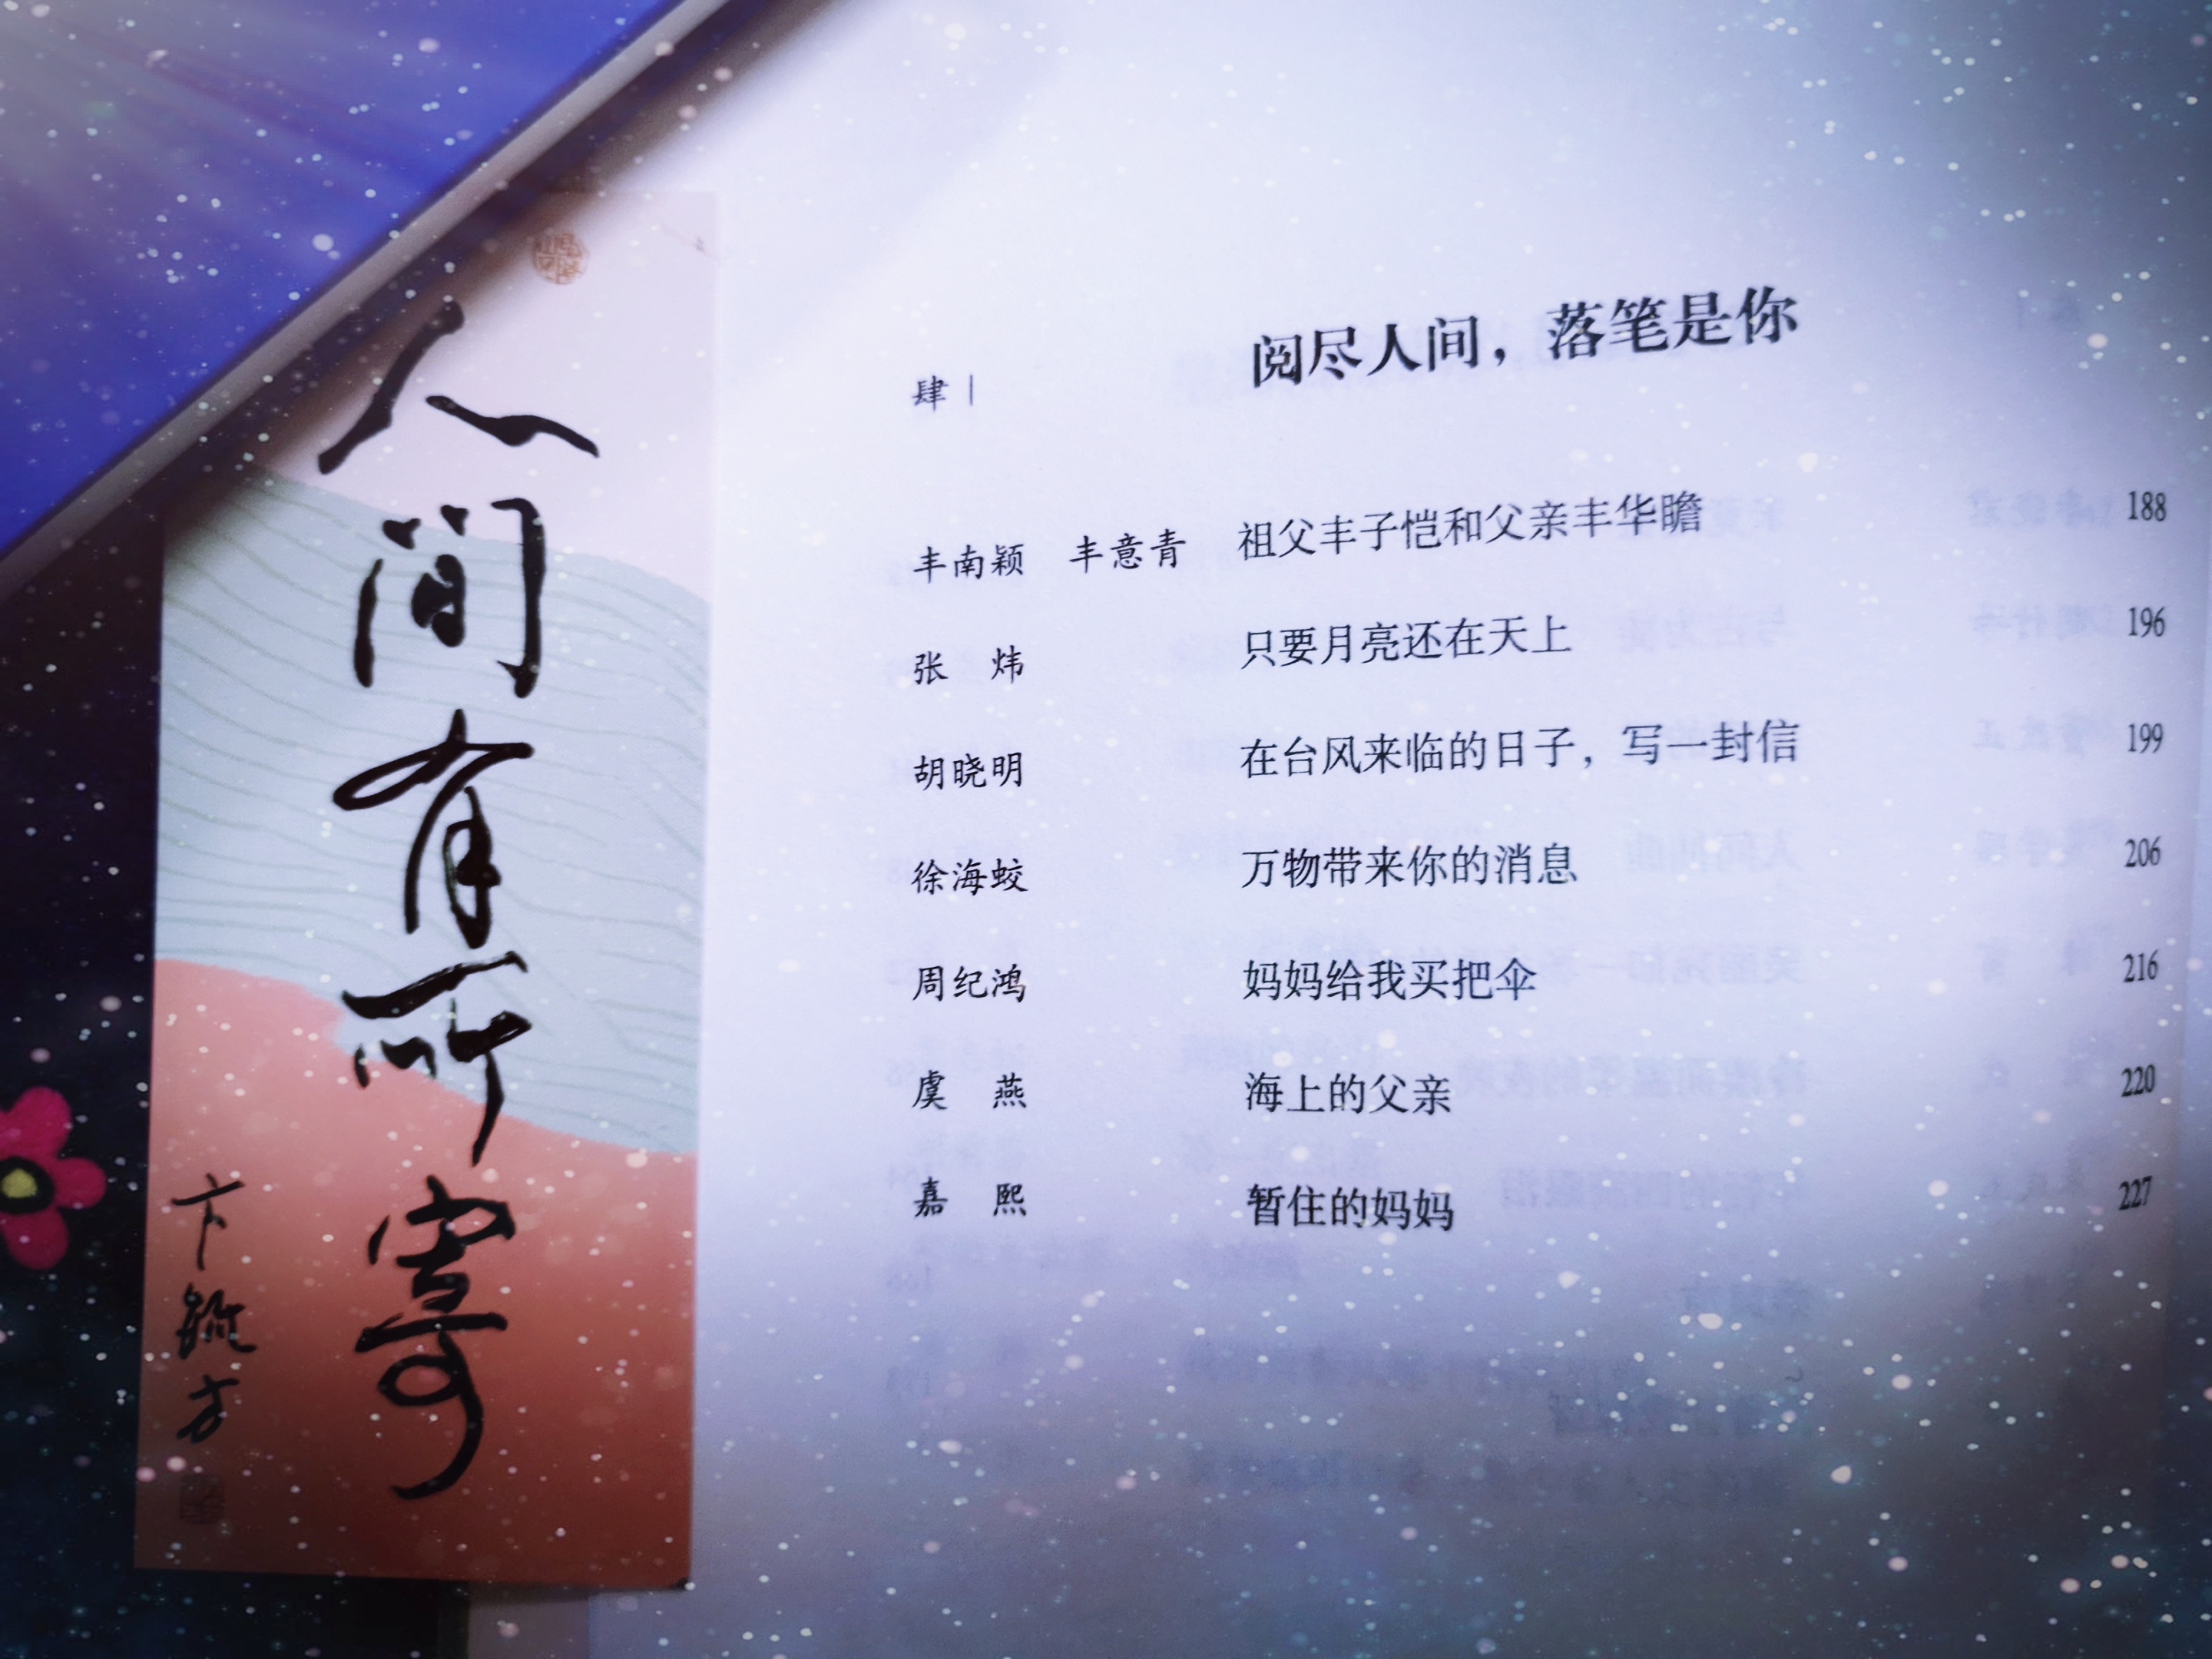 人间有所寄
卞毓方
肆｜ 阅尽人间，落笔是你
丰南颖 丰意青 祖父丰子恺和父亲丰华瞻 188
张 炜 只要月亮还在天上 196
胡晓明 在台风来临的日子，写一封信 199
徐海蛟 万物带来你的消息 206
周纪鸿 妈妈给我买把伞 216
虞 燕 海上的父亲 220
嘉 熙 暂住的妈妈 227